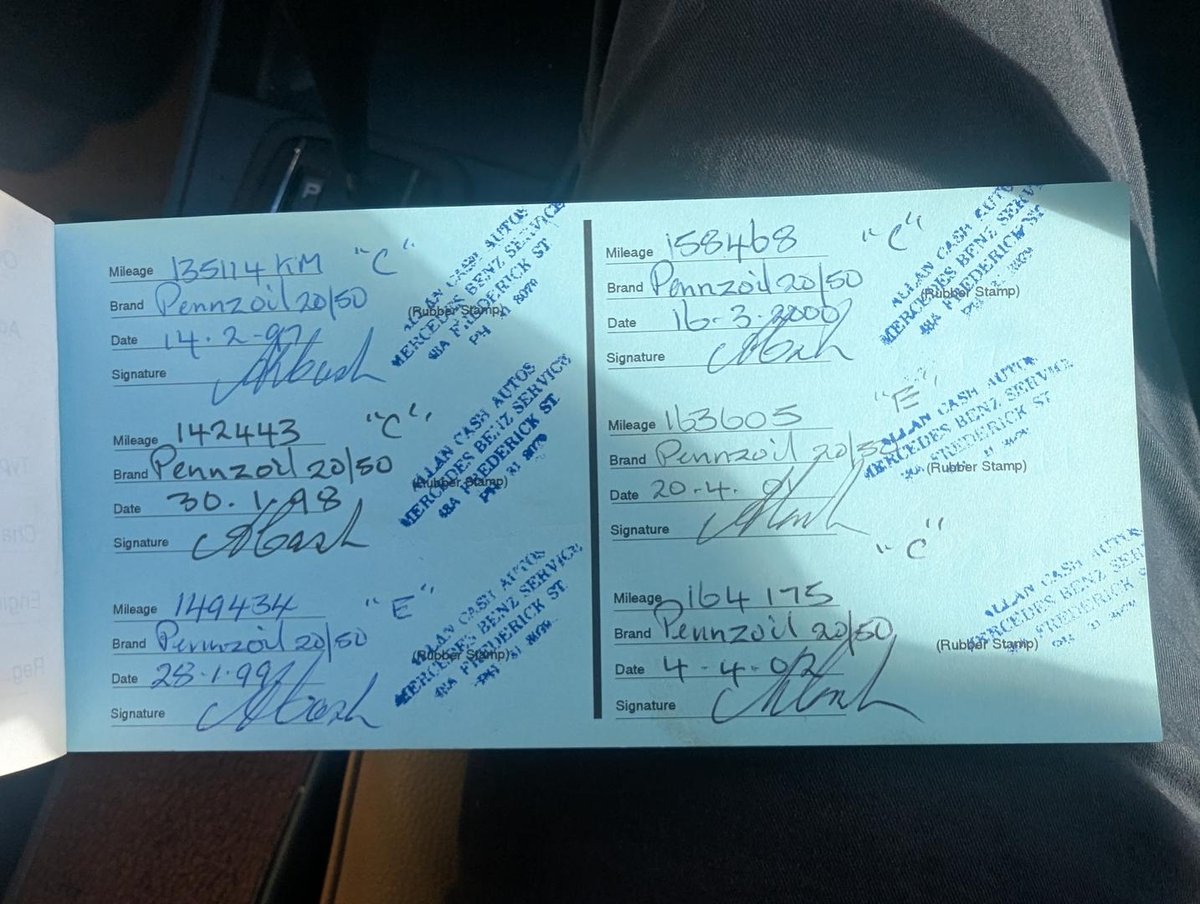 Mileage 135114 KM "C"
Brand Pennzoil 20/50
(Rubber Stamp)
Date 14.2.97
Signature
ALLAN CASH AUTOS
MERCEDES BENZ SERVICE
48A FREDERICK ST
Mileage 142443 "C"
Brand Pennzoil 20/50
(Rubber Stamp)
Date 30.1.98
Signature ACash
ALLAN CASH AUTOS
MERCEDES BENZ SERVICE
48A FREDERICK ST
PH 31 8070
Mileage 149434 "E"
Brand Pennzoil 20/50
(Rubber Stamp)
Date 28.1.99
Signature ACash
ALLAN CASH AUTOS
MERCEDES BENZ SERVICE
48A FREDERICK ST
Mileage 158468 "C"
Brand Pennzoil 20/50
(Rubber Stamp)
Date 16.3.2000
Signature ACash
ALLAN CASH AUTO
MERCEDES BENZ SERV
48A FREDERICK ST
Mileage 163605 "E"
Brand Pennzoil 20/50
(Rubber Stamp)
Date 20.4.01
Signature
ALLAN CASH AUTOS
MERCEDES BENZ SERVICE
FREDERICK ST
Mileage 164175 "C"
Brand Pennzoil 20/50
(Rubber Stamp)
Date 4-4-02
Signature
ALLAN CASH AUTOS
MERCEDES BENZ SE
FREDERICK ST
P